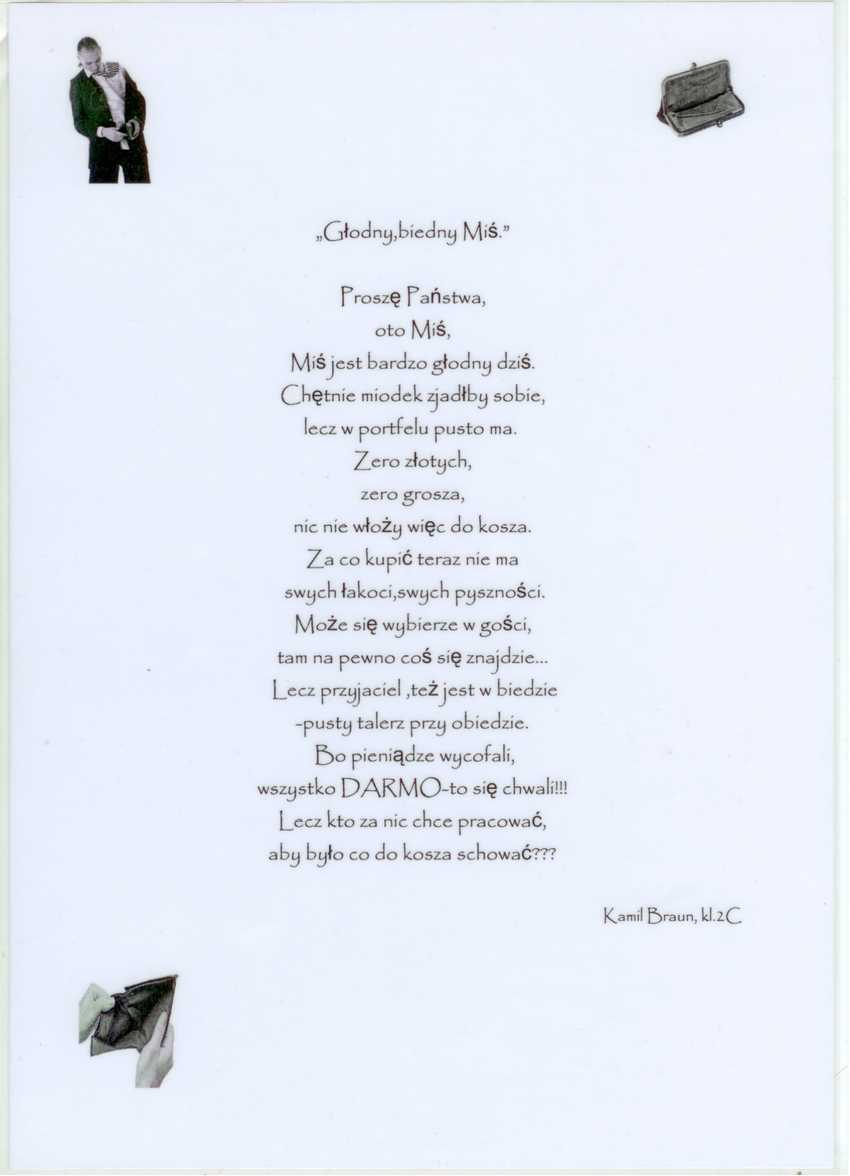 „Głodny,biedny Miś."
Proszę Państwa,
oto Miś,
Miś jest bardzo głodny dziś.
Chętnie miodek zjadłby sobie,
lecz w portfelu pusto ma.
Zero złotych,
zero grosza,
nic nie włoży więc do kosza.
Za co kupić teraz nie ma
swych łakoci,swych pyszności.
Może się wybierze w gości,
tam na pewno coś się znajdzie...
Lecz przyjaciel ,też jest w biedzie
-pusty talerz przy obiedzie.
Bo pieniądze wycofali,
wszystko DARMO-to się chwali!!!
Lecz kto za nic chce pracować,
aby było co do kosza schować???
Kamil Braun, kl.2C